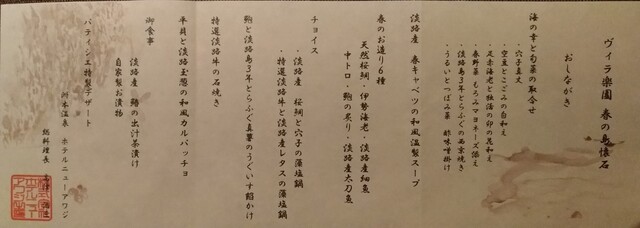 ヴィラ楽園 春の島懐石
おしながき
海の幸と旬菜の取合せ
・穴子真丈
・空豆とこごみの白和え
・足赤海老と独活の卯の花和え
・春野菜 もろみマヨネーズ添え
・淡路島3年とらふぐの西京焼き
・うるいとつぼみ菜 酢味噌掛け
淡路産 春キャベツの和風温製スープ
春のお造り6種
天然桜鯛・伊勢海老・淡路産細魚
中トロ・鮑の炙り・淡路産太刀魚
チョイス
・淡路産 桜鯛と穴子の藻塩鍋
・特選淡路牛と淡路産レタスの藻塩鍋
鮑と淡路島3年とらふぐ真薯のうぐいす餡かけ
特選淡路牛の石焼き
平貝と淡路玉葱の和風カルパッチョ
御食事
淡路産 鰆の出汁茶漬け
自家製お漬物
パティシエ特製デザート
洲本温泉 ホテルニューアワジ
総料理長